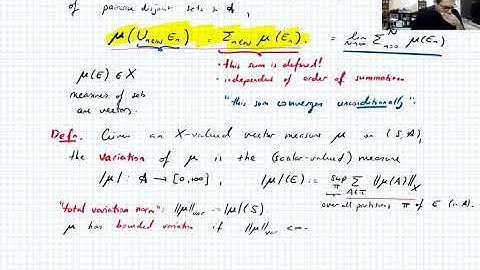 of pairwise disjoint sets in A,
μ(∪n∈ℕ En) = Σn∈ℕ μ(En). = lim N→∞ Σ n=0 N μ(En)
• this sum is defined!
• independent of order of summation
μ(E) ∈ X
measures of sets are vectors.
"this sum converges unconditionally".
Defn. Given an X-valued vector measure μ on (S,A),
the variation of μ is the (scalar-valued) measure
|μ| : A → [0,∞], |μ|(E) := sup π Σ A∈π ‖μ(A)‖X
over all partitions π of E (in A).
"total variation norm": ‖μ‖var := |μ|(S).
μ has bounded variation if ‖μ‖var < ∞.